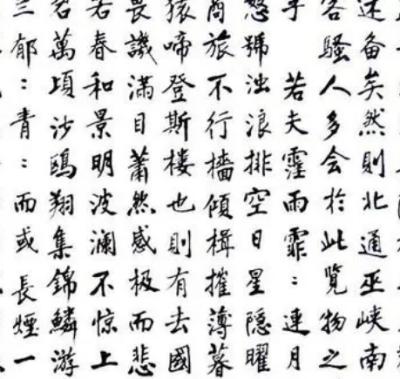 述备矣然則北通巫峡南
客騷人多会於此覽物之
乎 若夫霪雨霏：連月
怒號浊浪排空日星隱曜
商旅不行檣傾楫摧薄暮
猿啼登斯楼也則有去國
畏譏滿目蕭然感極而悲
若春和景明波澜不惊上
萬頃沙鷗翔集錦鱗游
兰郁：青：而或長煙一